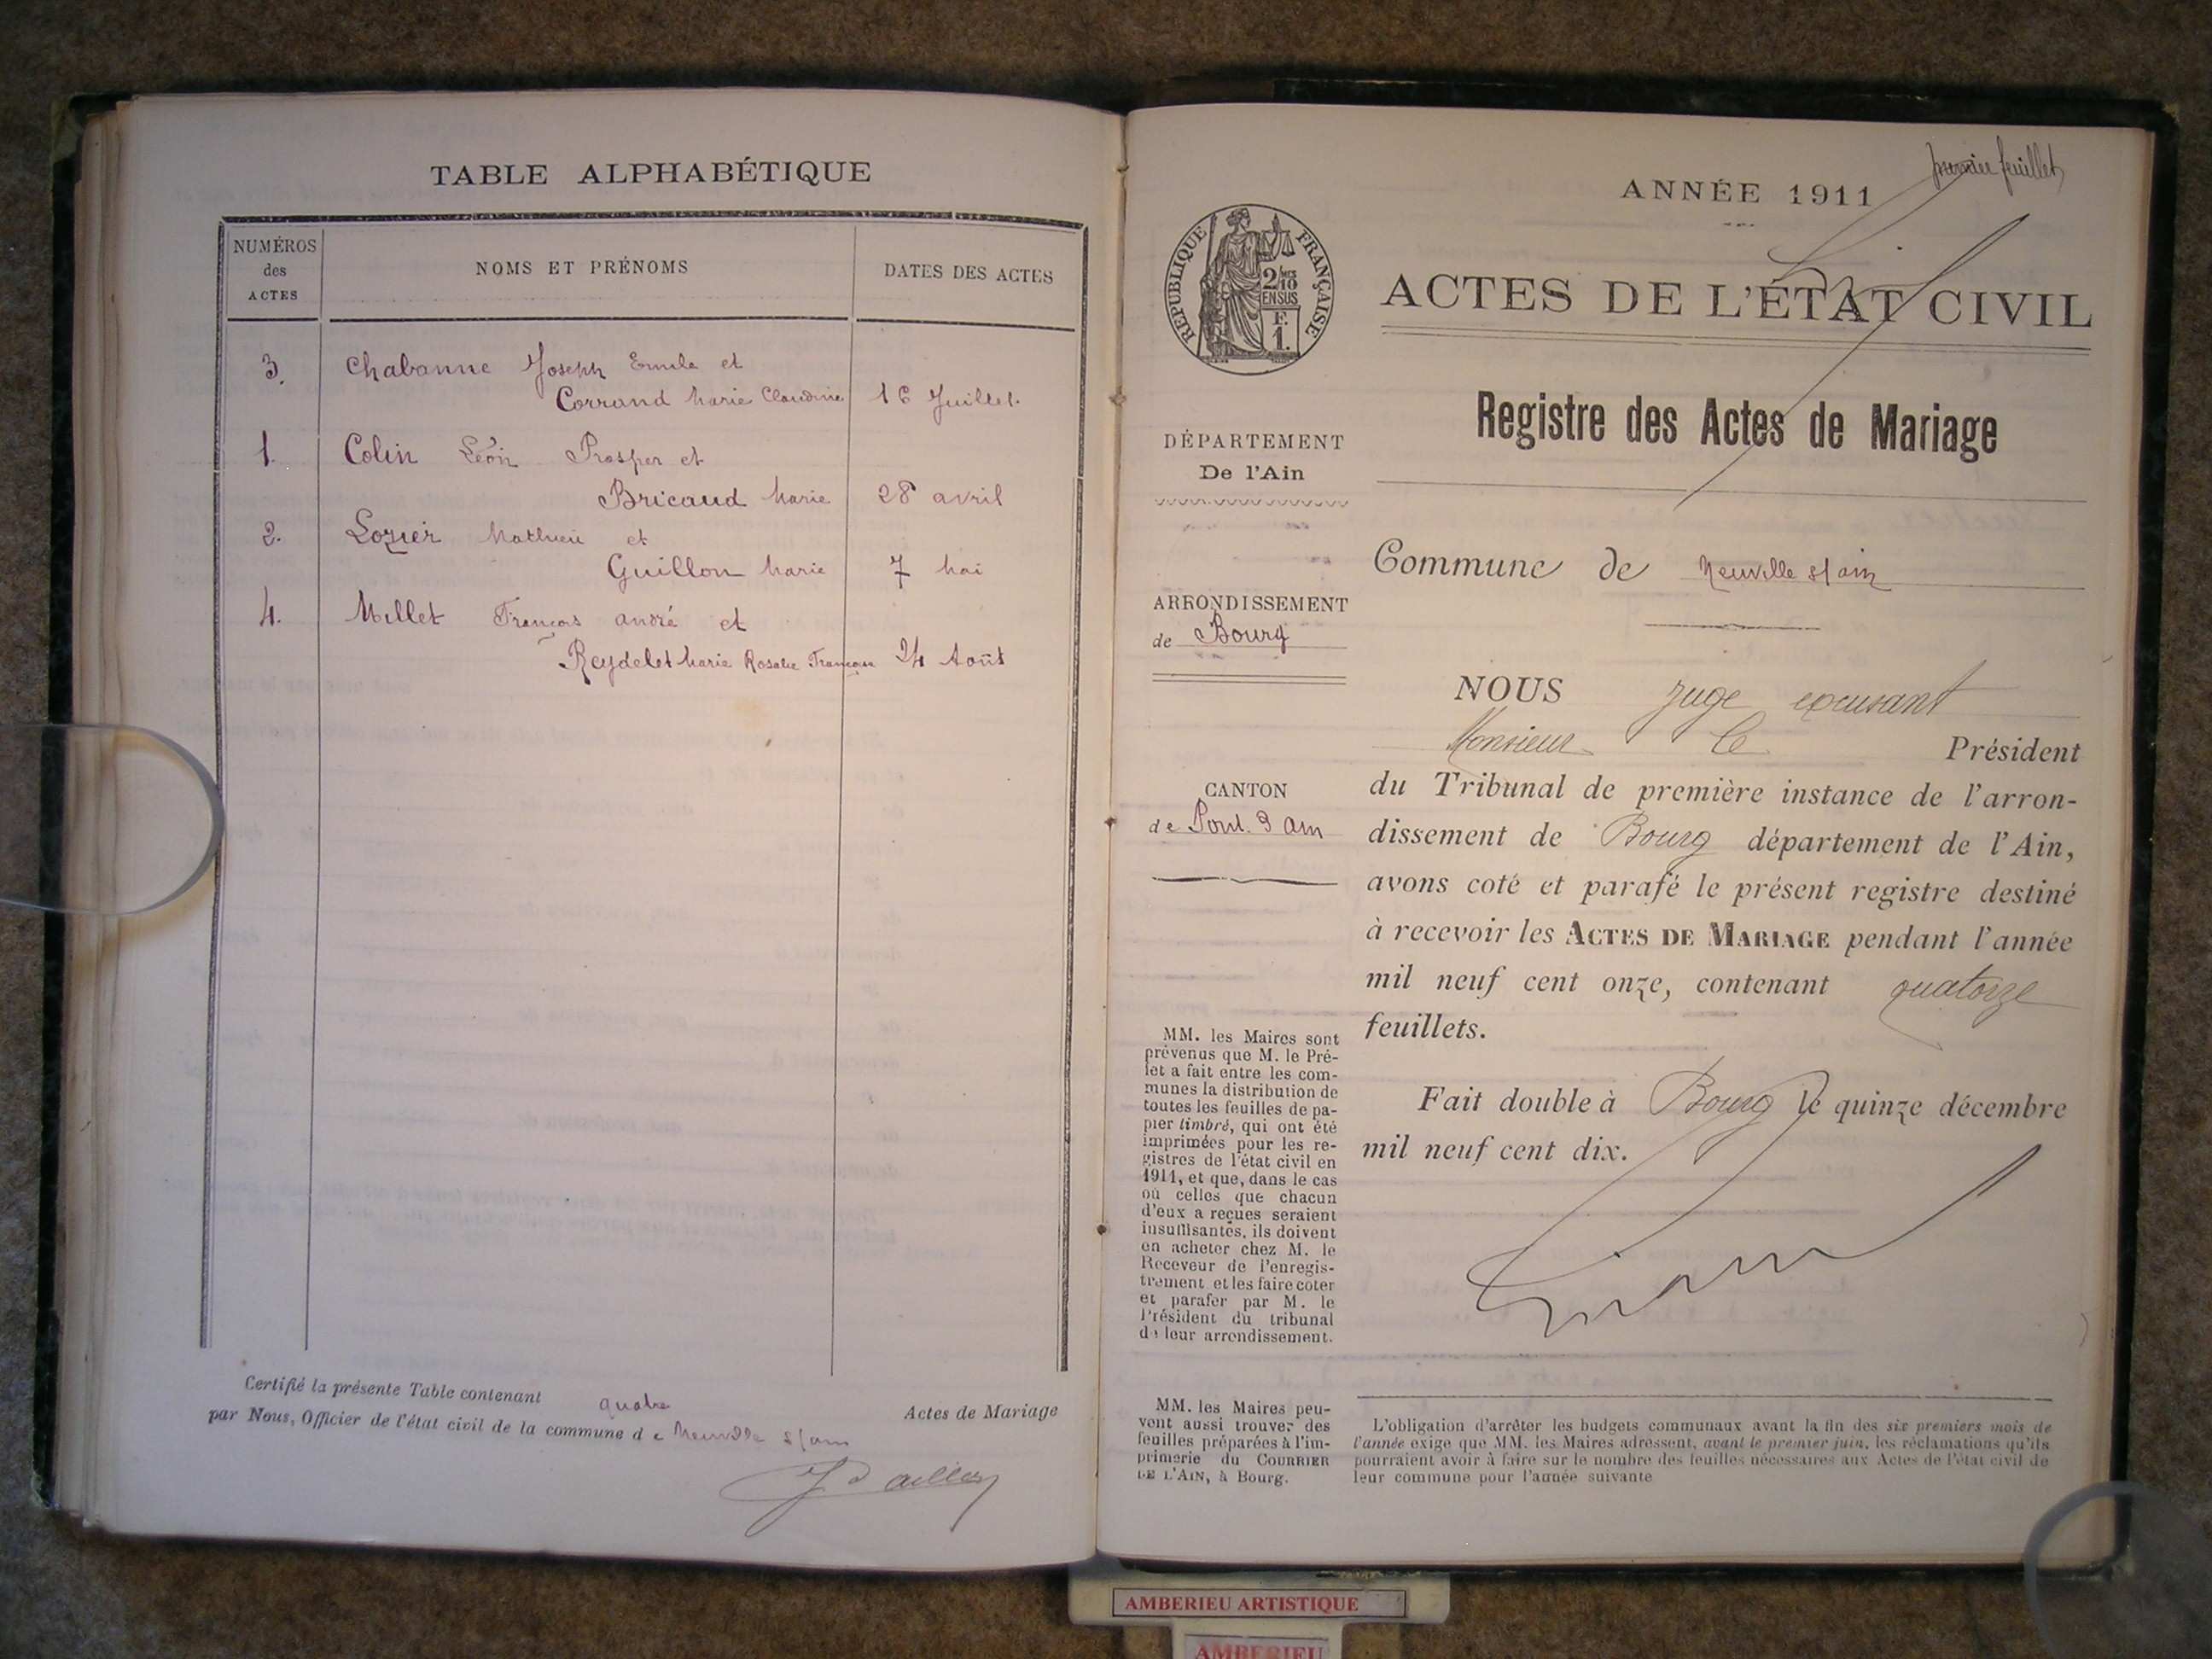 TABLE ALPHABÉTIQUE
NUMÉROS
des
ACTES
NOMS ET PRÉNOMS
DATES DES ACTES
3. Chabanne Joseph Emile et
Corrand Marie Claudine 16 Juillet.
1. Colin Léon Prosper et
Bricaud Marie 28 avril
2. Lozier Mathieu et
Guillon Marie 7 Mai
4. Millet François andré et
Reydelet Marie Rosalie 24 Août
Certifié la présente Table contenant quatre Actes de Mariage
par Nous, Officier de l'état civil de la commune de Neuville s/ain
premier feuillet
ANNÉE 1911
RÉPUBLIQUE FRANÇAISE
2/10
EN SUS
F.
1.
ACTES DE L'ÉTAT CIVIL
Registre des Actes de Mariage
DÉPARTEMENT
De l'Ain
Commune de Neuville s/ain
ARRONDISSEMENT
de Bourg
CANTON
de Pont. d'ain
NOUS juge excusant
Monsieur le Président
du Tribunal de première instance de l'arron-
dissement de Bourg département de l'Ain,
avons coté et parafé le présent registre destiné
à recevoir les ACTES DE MARIAGE pendant l'année
mil neuf cent onze, contenant quatorze
feuillets.
Fait double à Bourg le quinze décembre
mil neuf cent dix.
MM. les Maires sont
prévenus que M. le Pré-
fet a fait entre les com-
munes la distribution de
toutes les feuilles de pa-
pier timbré, qui ont été
imprimées pour les re-
gistres de l'état civil en
1911, et que, dans le cas
où celles que chacun
d'eux a reçues seraient
insuffisantes, ils doivent
en acheter chez M. le
Receveur de l'enregis-
trement et les faire coter
et parafer par M. le
Président du tribunal
de leur arrondissement.
MM. les Maires peu-
vent aussi trouver des
feuilles préparées à l'im-
primerie du COURRIER
DE L'AIN, à Bourg.
L'obligation d'arrêter les budgets communaux avant la fin des six premiers mois de
l'année exige que MM. les Maires adressent, avant le premier juin, les réclamations qu'ils
pourraient avoir à faire sur le nombre des feuilles nécessaires aux Actes de l'état civil de
leur commune pour l'année suivante
AMBERIEU ARTISTIQUE
AMBERIEU